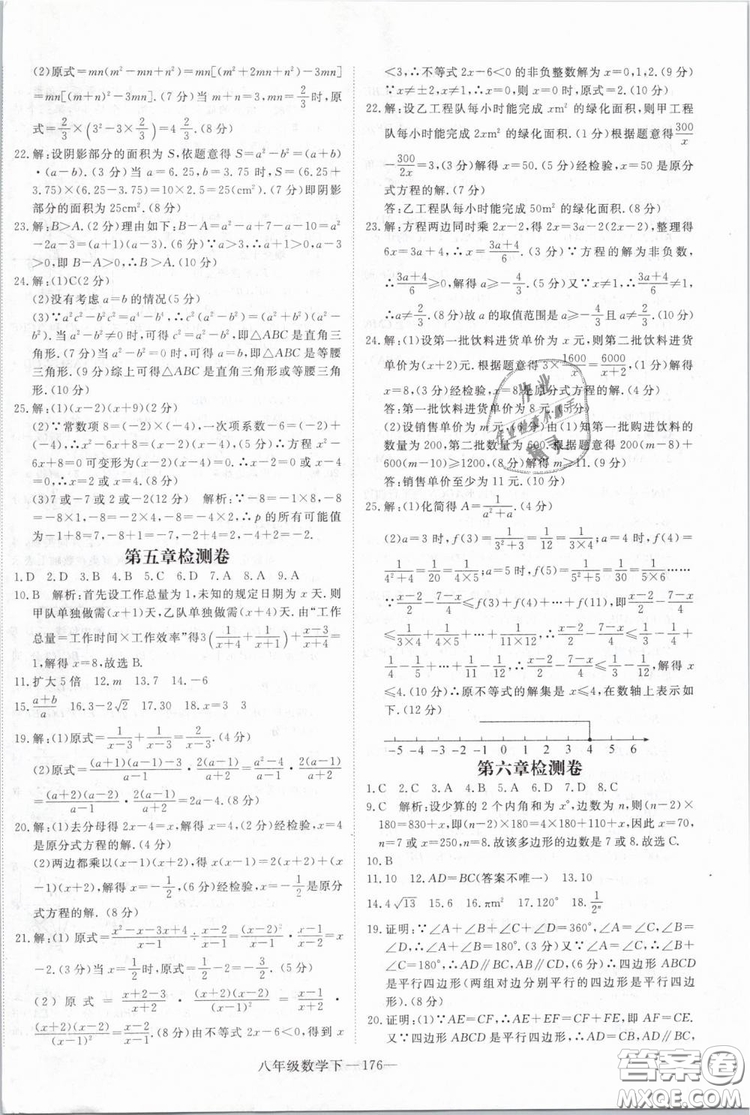 (2)原式=mn(m²-mn+n²)=mn[(m²+2mn+n²)-3mn]=
mn[(m+n)²-3mn].(7分)当m+n=3,mn=2/3时,原
式=2/3×(3²-3×2/3)=4 2/3.(8分)
22.解:设阴影部分的面积为S,依题意得S=a²-b²=(a+b)
·(a-b).(3分)当a=6.25,b=3.75时,S=(6.25+
3.75)×(6.25-3.75)=10×2.5=25(cm²).(7分)即阴影
部分的面积为25cm².(8分)
23.解:B>A.(2分)理由如下:B-A=a²-a+7-a-10=a²-
2a-3=(a+1)(a-3).(6分)∵a>3,∴a+1>0,a-3
>0,即B-A>0,∴B>A.(10分)
24.解:(1)C(2分)
(2)没有考虑a=b的情况(5分)
(3)∵a²c²-b²c²=a⁴-b⁴,∴c²(a²-b²)=(a²+b²)(a²-
b²).当a²-b²≠0时,可得c²=a²+b²,即△ABC是直角三
角形.(7分)当a²-b²=0时,可得a=b,即△ABC是等腰三
角形.(9分)综上可得△ABC是直角三角形或等腰三角
形.(10分)
25.解:(1)(x-2)(x+9)(2分)
(2)∵常数项8=(-2)×(-4),一次项系数-6=(-2)+
(-4),∴x²-6x+8=(x-2)(x-4).(5分)∴方程x²
-6x+8=0可变形为(x-2)(x-4)=0.∴x-2=0或x-4
=0,∴x=2或x=4.(8分)
(3)7或-7或2或-2(12分) 解析:-8=-1×8,-8
=-8×1,-8=-2×4,-8=-4×2,∴p的所有可能值
为-1+8=7,-8+1=-7,-2+4=2,-4+2=-2.
第五章检测卷
1.D 2.D 3.A 4.B 5.C 6.D 7.D 8.A 9.A
10.B 解析:首先设工作总量为1,未知的规定日期为x天,则
甲队单独做需(x+1)天,乙队单独做需(x+4)天.由“工作
总量=工作时间×工作效率”得3(1/(x+1)+1/(x+4))+(x-3)/(x+4)=
1,解得x=8,故选B.
11.扩大5倍 12.m 13.7 14.-6
15.(a+b)/a 16.3-2√2 17.30 18.x=3 3
19.解:(1)原式=x/(x-3)+1/(x-3)=(x+1)/(x-3).(4分)
(2)原式=((a+1)(a-1)-3)/(a-1)·(2(a-1))/(a+2)=(a²-4)/(a-1)·(2(a-1))/(a+2)
=((a+2)(a-2))/(a-1)·(2(a-1))/(a+2)=2a-4.(8分)
20.解:(1)去分母得2x-4=x,解得x=4,(3分)经检验,x=4是
原分式方程的解.(4分)
(2)两边都乘以(x-1)(x+2),得x(x+2)-(x-1)(x+
2)=3,解得x=1,(7分)经检验,x=1不是原分式方程的解,∴原分
式方程无解.(8分)
21.解:(1)原式=(x²-x-3x+4)/(x-1)÷(x-2)/(x-1)=(x-2)²/(x-1)·(x-1)/(x-2)=x
-2.(3分)当x=1时,原分式无意义.(4分)
(2)原式=(x+2-3)/(x+2)·(x+2)/(x-1)²=(x-1)/(x+2)
·(x+2)/(x-1)²=1/(x-1).(8分)由不等式2x-6<0,得到x
<3,∴不等式2x-6<0的非负整数解为x=0,1,2.(9分)
22.解:设乙工程队每小时能完成xm²的绿化面积,则甲工程
队每小时能完成2xm²的绿化面积.(1分)根据题意得300/x
-300/2x=3,(3分)解得x=50.(5分)经检验,x=50是原分
式方程的解.(7分)
答:乙工程队每小时能完成50m²的绿化面积.(8分)
23.解:方程两边同时乘2x-2,得2x=3a-2(2x-2),整理得
6x=3a+4,∴x=(3a+4)/6.(3分)∵方程的解为非负数,
∴(3a+4)/6≥0,∴a≥-4/3.(6分)又∵x≠1,∴(3a+4)/6≠1,
∴a≠2/3.(8分)故a的取值范围是a≥-4/3且a≠2/3.(10分)
24.解:(1)设第一批饮料进货单价为x元,则第二批饮料进货
单价为(x+2)元.根据题意得3×1600/x=6000/(x+2),(3
分)解得x=8,(4分)经检验,x=8是原分式方程的解.
答:第一批饮料进货单价为8元.(5分)
(2)设销售单价为m元.由(1)可知第一批购进饮料的
数量为200,第二批数量为600.根据题意得200(m-8)+
600(m-10)≥1200,(8分)解得m≥11.(9分)
答:销售单价至少为11元.(10分)
25.解:(1)化简得A=1/(a²+a).(4分)
(2)当a=3时,f(3)=1/(3²+3)=1/12=1/(3×4),f(4)=
1/(4²+4)=1/20=1/(4×5),f(5)=1/(5²+5)=1/30=1/(5×6),…
∵(x-2)/2-(7-x)/4≤f(3)+f(4)+…+f(11),∴(x-2)/2-(7-x)/4
≤1/(3×4)+1/(4×5)+…+1/(11×12),∴(x-2)/2-(7-x)/4≤1/3-1/4
+1/4-1/5+…+1/11-1/12,∴(x-2)/2-(7-x)/4≤1/4,解得x
≤4.(10分)∴原不等式的解集是x≤4,在数轴上表示如
下.(12分)
-5 -4 -3 -2 -1 0 1 2 3 4 5 6
第六章检测卷
1.C 2.C 3.A 4.B 5.C 6.A 7.B 8.C
9.C 解析:设少算的2个内角和为x°,边数为n,则(n-2)×
180=830+x,即(n-2)×180=4×180+110+x,因此x=70,
n=7或x=250,n=8.故该多边形的边数是7或8.故选C.
10.B
11.10 12.AD=BC(答案不唯一) 13.10
14.4√13 15.6 16.πm² 17.120° 18.1/2ⁿ
19.证明:∵∠A+∠B+∠C+∠D=360°,∠A=∠C,∠B=
∠D,∴∠A+∠B=180°.(3分)又∵∠A=∠C,∴∠B+
∠C=180°,∴AD∥BC,AB∥CD,(6分)∴四边形ABCD
是平行四边形(两组对边分别平行的四边形是平行四
边形).(8分)
20.证明:(1)∵AE=CF,∴AE+EF=CF+EF,即AF=CE.
又∵四边形ABCD是平行四边形,∴AD=CB,AD∥BC,
八年级数学下—176—
作业
精灵
答案圈
MXQE.COM